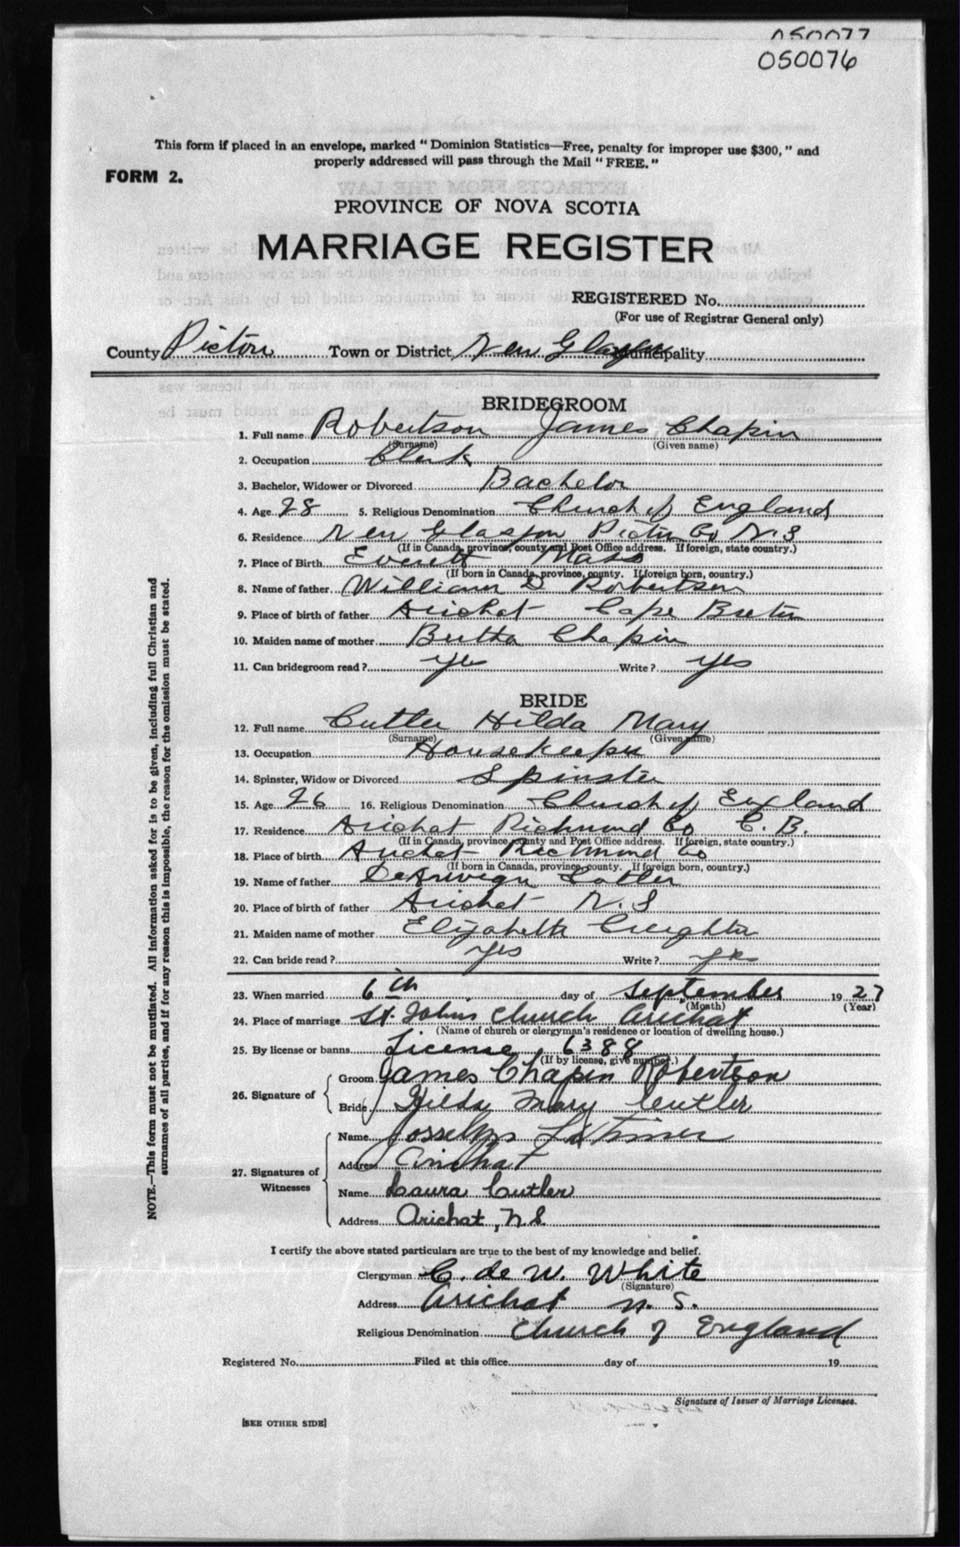 050077
050076
This form if placed in an envelope, marked “Dominion Statistics—Free, penalty for improper use $300,” and
properly addressed will pass through the Mail “FREE.”
FORM 2.
PROVINCE OF NOVA SCOTIA
MARRIAGE REGISTER
REGISTERED No.
(For use of Registrar General only)
County Pictou Town or District New Glasgow Municipality
BRIDEGROOM
1. Full name Robertson James Chapin
(Surname) (Given name)
2. Occupation Clerk
3. Bachelor, Widower or Divorced Bachelor
4. Age 28 5. Religious Denomination Church of England
6. Residence New Glasgow Pictou Co N.S
(If in Canada, province, county and Post Office address. If foreign, state country.)
7. Place of Birth Everett Mass
(If born in Canada, province, county. If foreign born, country.)
8. Name of father William D Robertson
9. Place of birth of father Arichat Cape Breton
10. Maiden name of mother Bertha Chapin
11. Can bridegroom read? yes Write? yes
BRIDE
12. Full name Cutler Hilda Mary
(Surname) (Given name)
13. Occupation Housekeeper
14. Spinster, Widow or Divorced Spinster
15. Age 26 16. Religious Denomination Church of England
17. Residence Arichat Richmond Co C. B.
(If in Canada, province, county and Post Office address. If foreign, state country.)
18. Place of birth Arichat Richmond Co
(If born in Canada, province, county. If foreign born, country.)
19. Name of father
20. Place of birth of father Arichat N.S
21. Maiden name of mother Elizabeth Creighton
22. Can bride read? Yes Write? yes
23. When married 6th day of September 1927
(Month) (Year)
24. Place of marriage St. John's Church Arichat
(Name of church or clergyman's residence or location of dwelling house.)
25. By license or banns License 6388
(If by license, give number.)
26. Signature of Groom James Chapin Robertson
Bride Hilda Mary Cutler
27. Signatures of Witnesses Name
Address Arichat
Name Laura Cutler
Address Arichat, N.S.
I certify the above stated particulars are true to the best of my knowledge and belief.
Clergyman C. de W. White
(Signature)
Address Arichat N. S.
Religious Denomination Church of England
Registered No. Filed at this office day of 19
Signature of Issuer of Marriage Licenses.
[SEE OTHER SIDE]
NOTE.—This form must not be mutilated. All information asked for is to be given, including full Christian and
surnames of all parties, and if for any reason this is impossible, the reason for the omission must be stated.